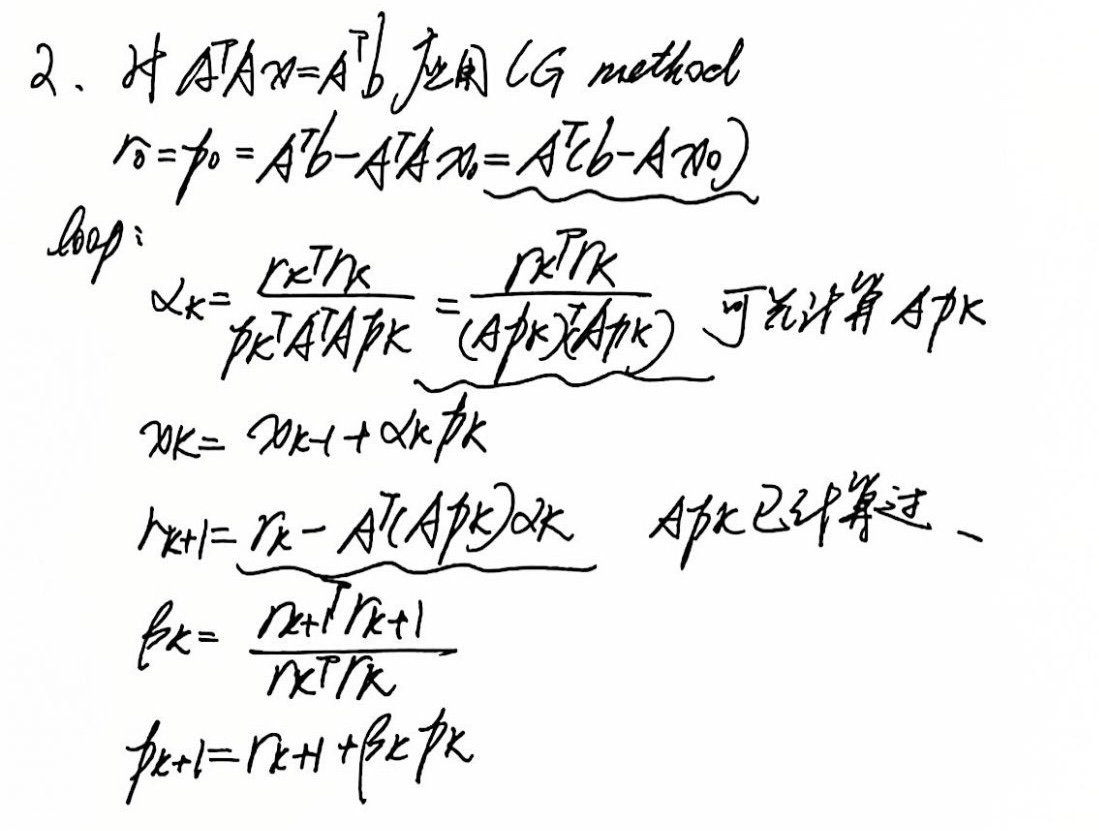 2、对 AᵀAx=Aᵀb 应用 CG method
r₀=p₀=Aᵀb-AᵀAx₀=Aᵀ(b-Ax₀)
loop:
αₖ= rₖᵀrₖ / pₖᵀAᵀApₖ = rₖᵀrₖ / (Apₖ)ᵀ(Apₖ) 可先计算 Apₖ
xₖ= xₖ₋₁+αₖpₖ
rₖ₊₁= rₖ- Aᵀ(Apₖ)αₖ Apₖ已计算过、
βₖ= rₖ₊₁ᵀrₖ₊₁ / rₖᵀrₖ
pₖ₊₁=rₖ₊₁+βₖpₖ